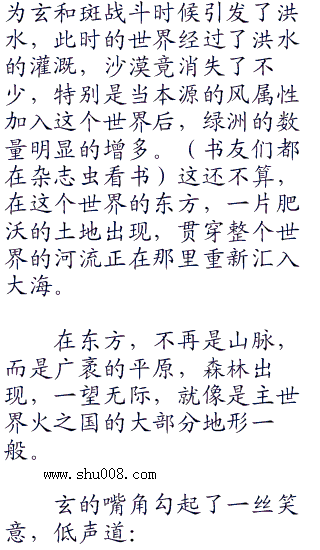 为玄和斑战斗时候引发了洪
水，此时的世界经过了洪水
的灌溉，沙漠竟消失了不
少，特别是当本源的风属性
加入这个世界后，绿洲的数
量明显的增多。（书友们都
在杂志虫看书）这还不算，
在这个世界的东方，一片肥
沃的土地出现，贯穿整个世
界的河流正在那里重新汇入
大海。
在东方，不再是山脉，
而是广袤的平原，森林出
现，一望无际，就像是主世
界火之国的大部分地形一
般。
www.shu008.com
玄的嘴角勾起了一丝笑
意，低声道：